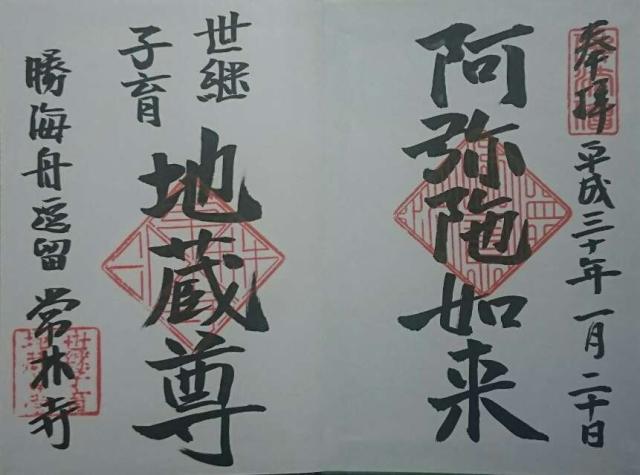 奉拝 平成三十年一月二十日
阿弥陀如来
世継
子育
地蔵尊
勝海舟逗留 常林寺